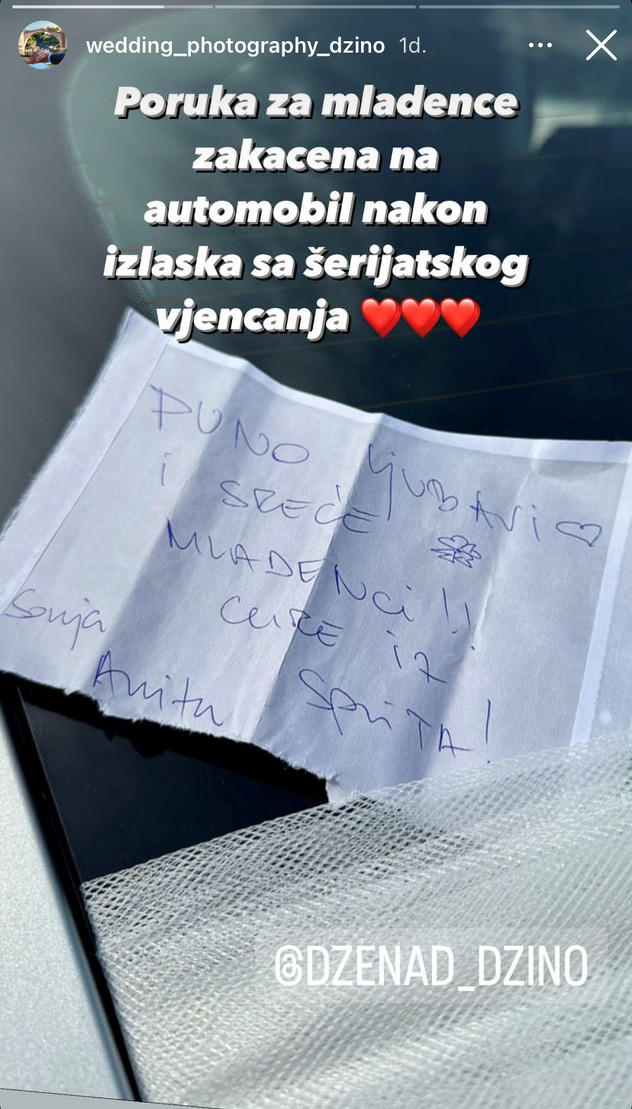 wedding_photography_dzino 1d.
Poruka za mladence
zakacena na
automobil nakon
izlaska sa šerijatskog
vjencanja ❤️❤️❤️
PUNO LJUBAVI ♡
i SREĆE
MLADENCI!!
CURE iZ
SPLiTA!
Sonja
Anita
@DZENAD_DZINO